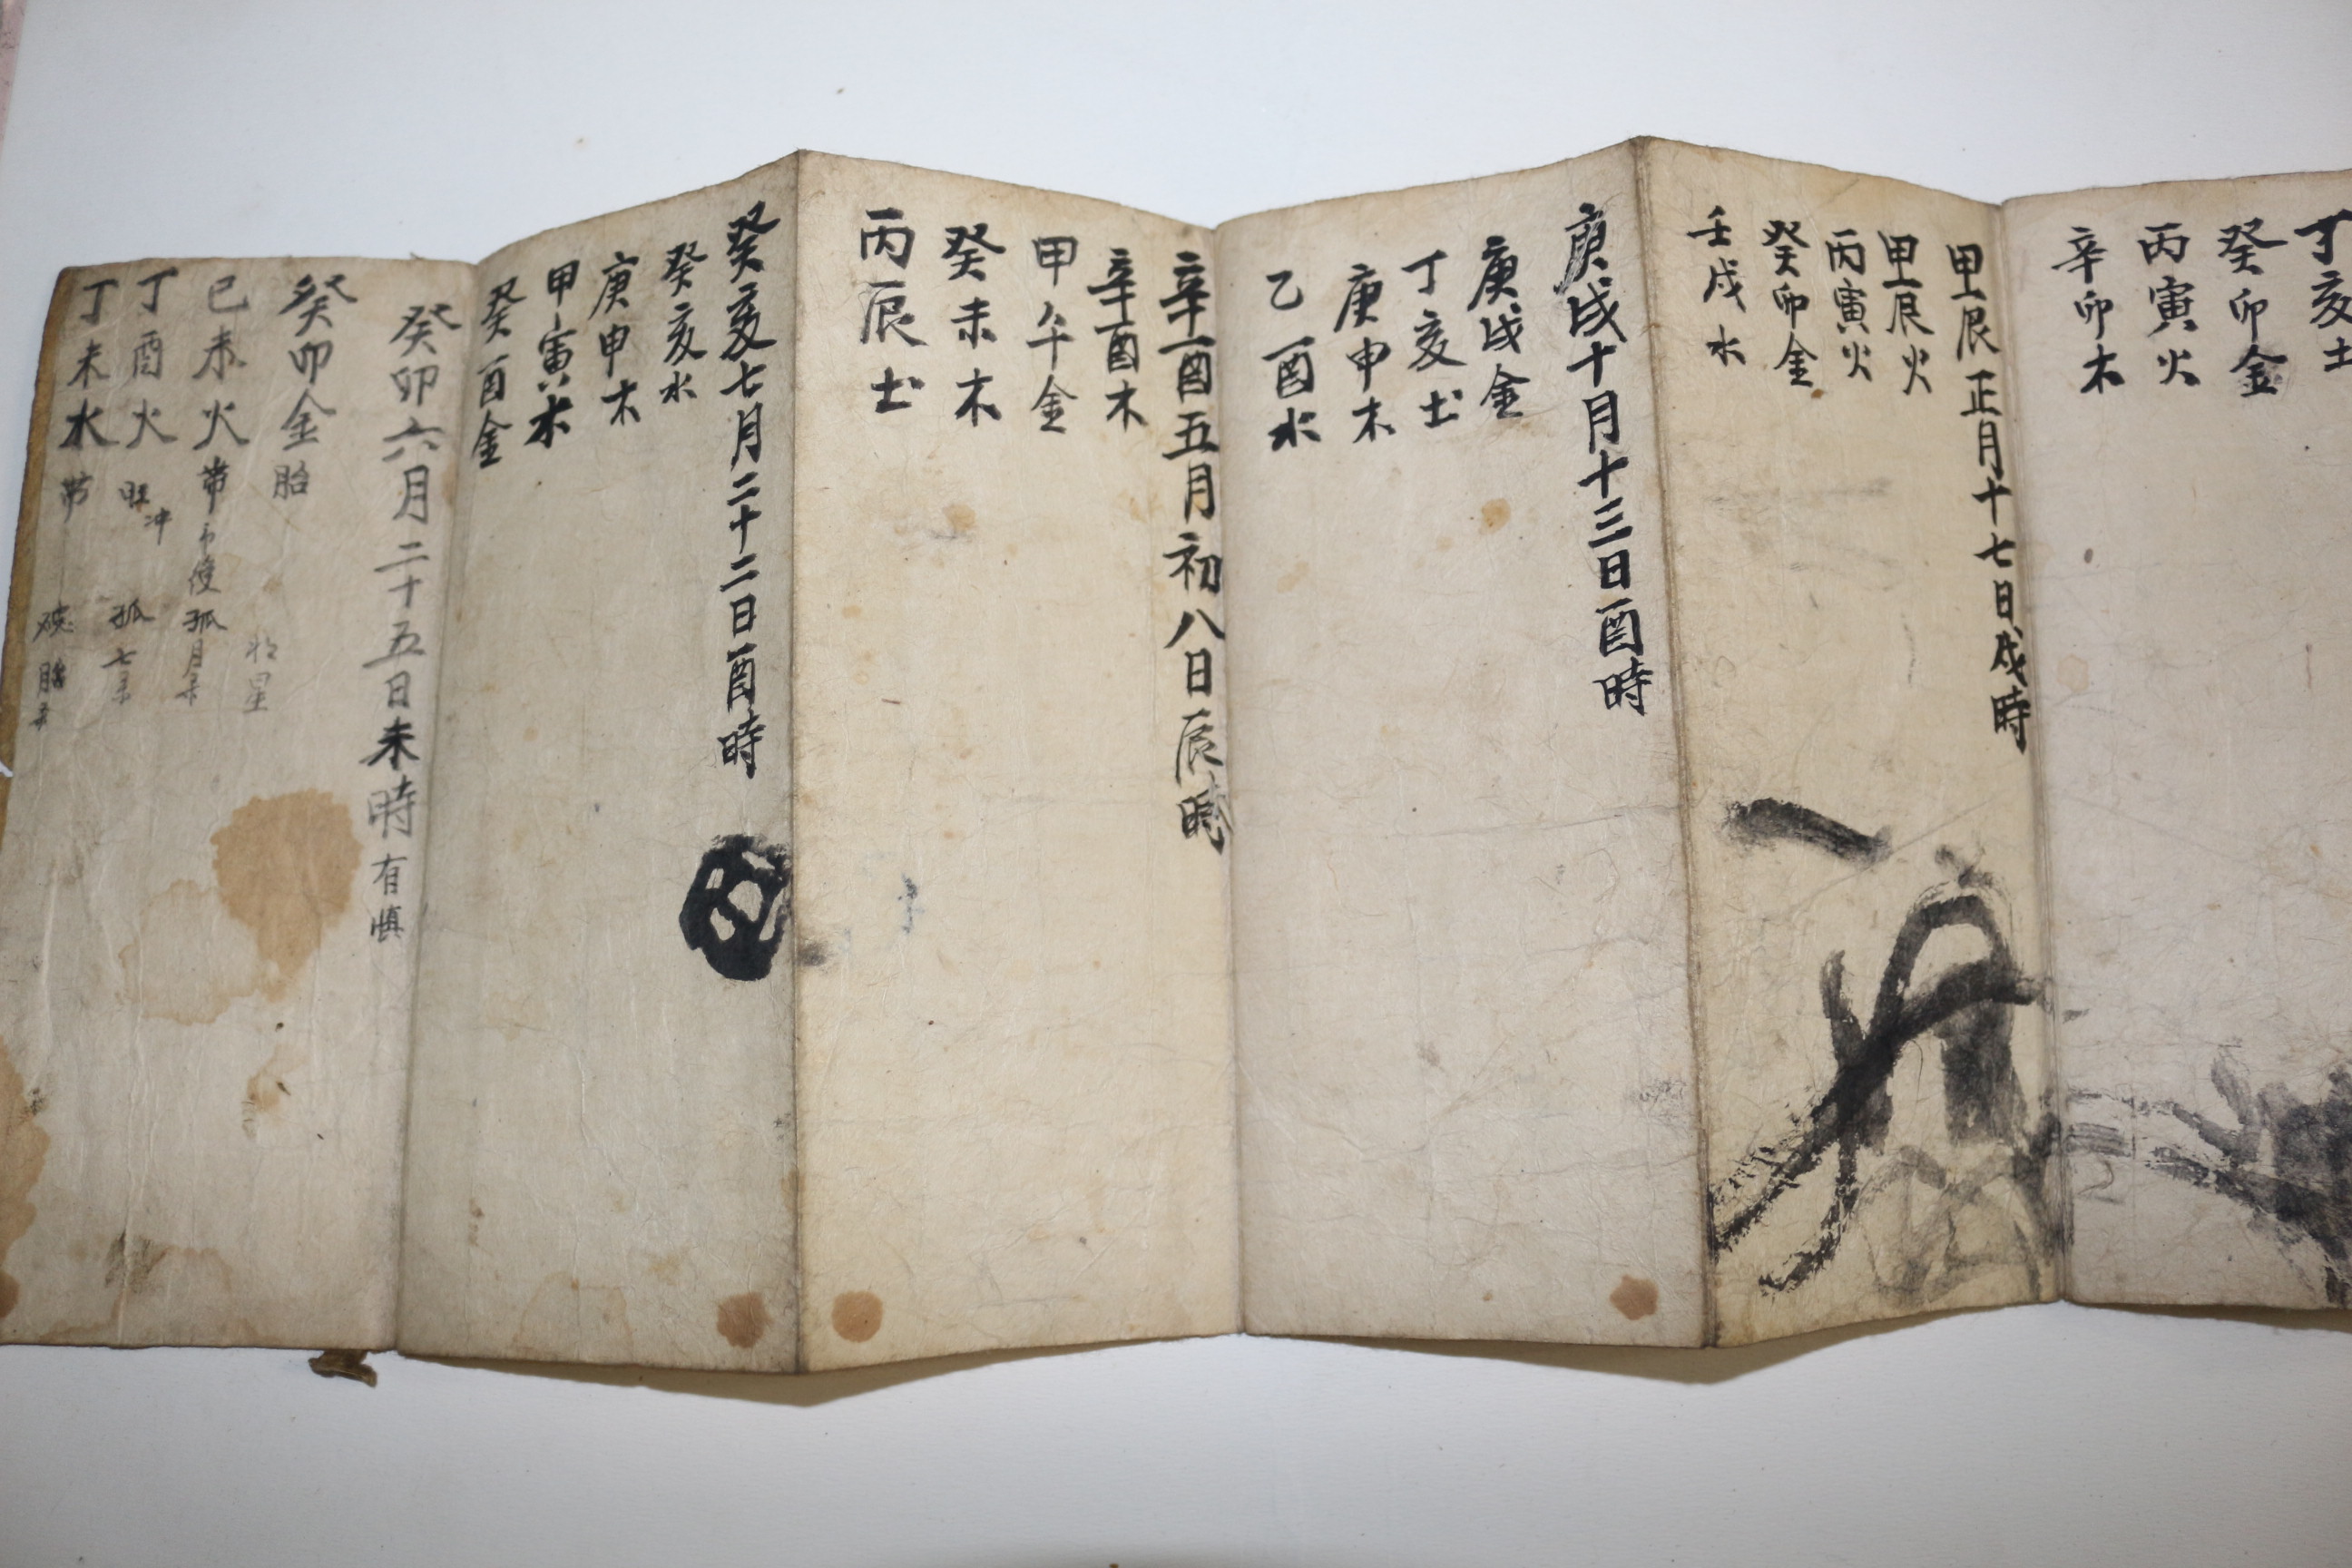 丁亥土
癸卯金
丙寅火
辛卯木
甲辰正月十七日戌時
甲辰火
丙寅火
癸卯金
壬戌水
庚戌十月十三日酉時
庚戌金
丁亥土
庚申木
乙酉水
辛酉五月初八日辰時
辛酉木
甲午金
癸未木
丙辰土
癸亥七月二十二日酉時
癸亥水
庚申木
甲寅木
癸酉金
癸卯六月二十五日未時有慎
癸卯金胎
己未火帶 孤
丁酉火旺冲 孤
丁未水帶 胎